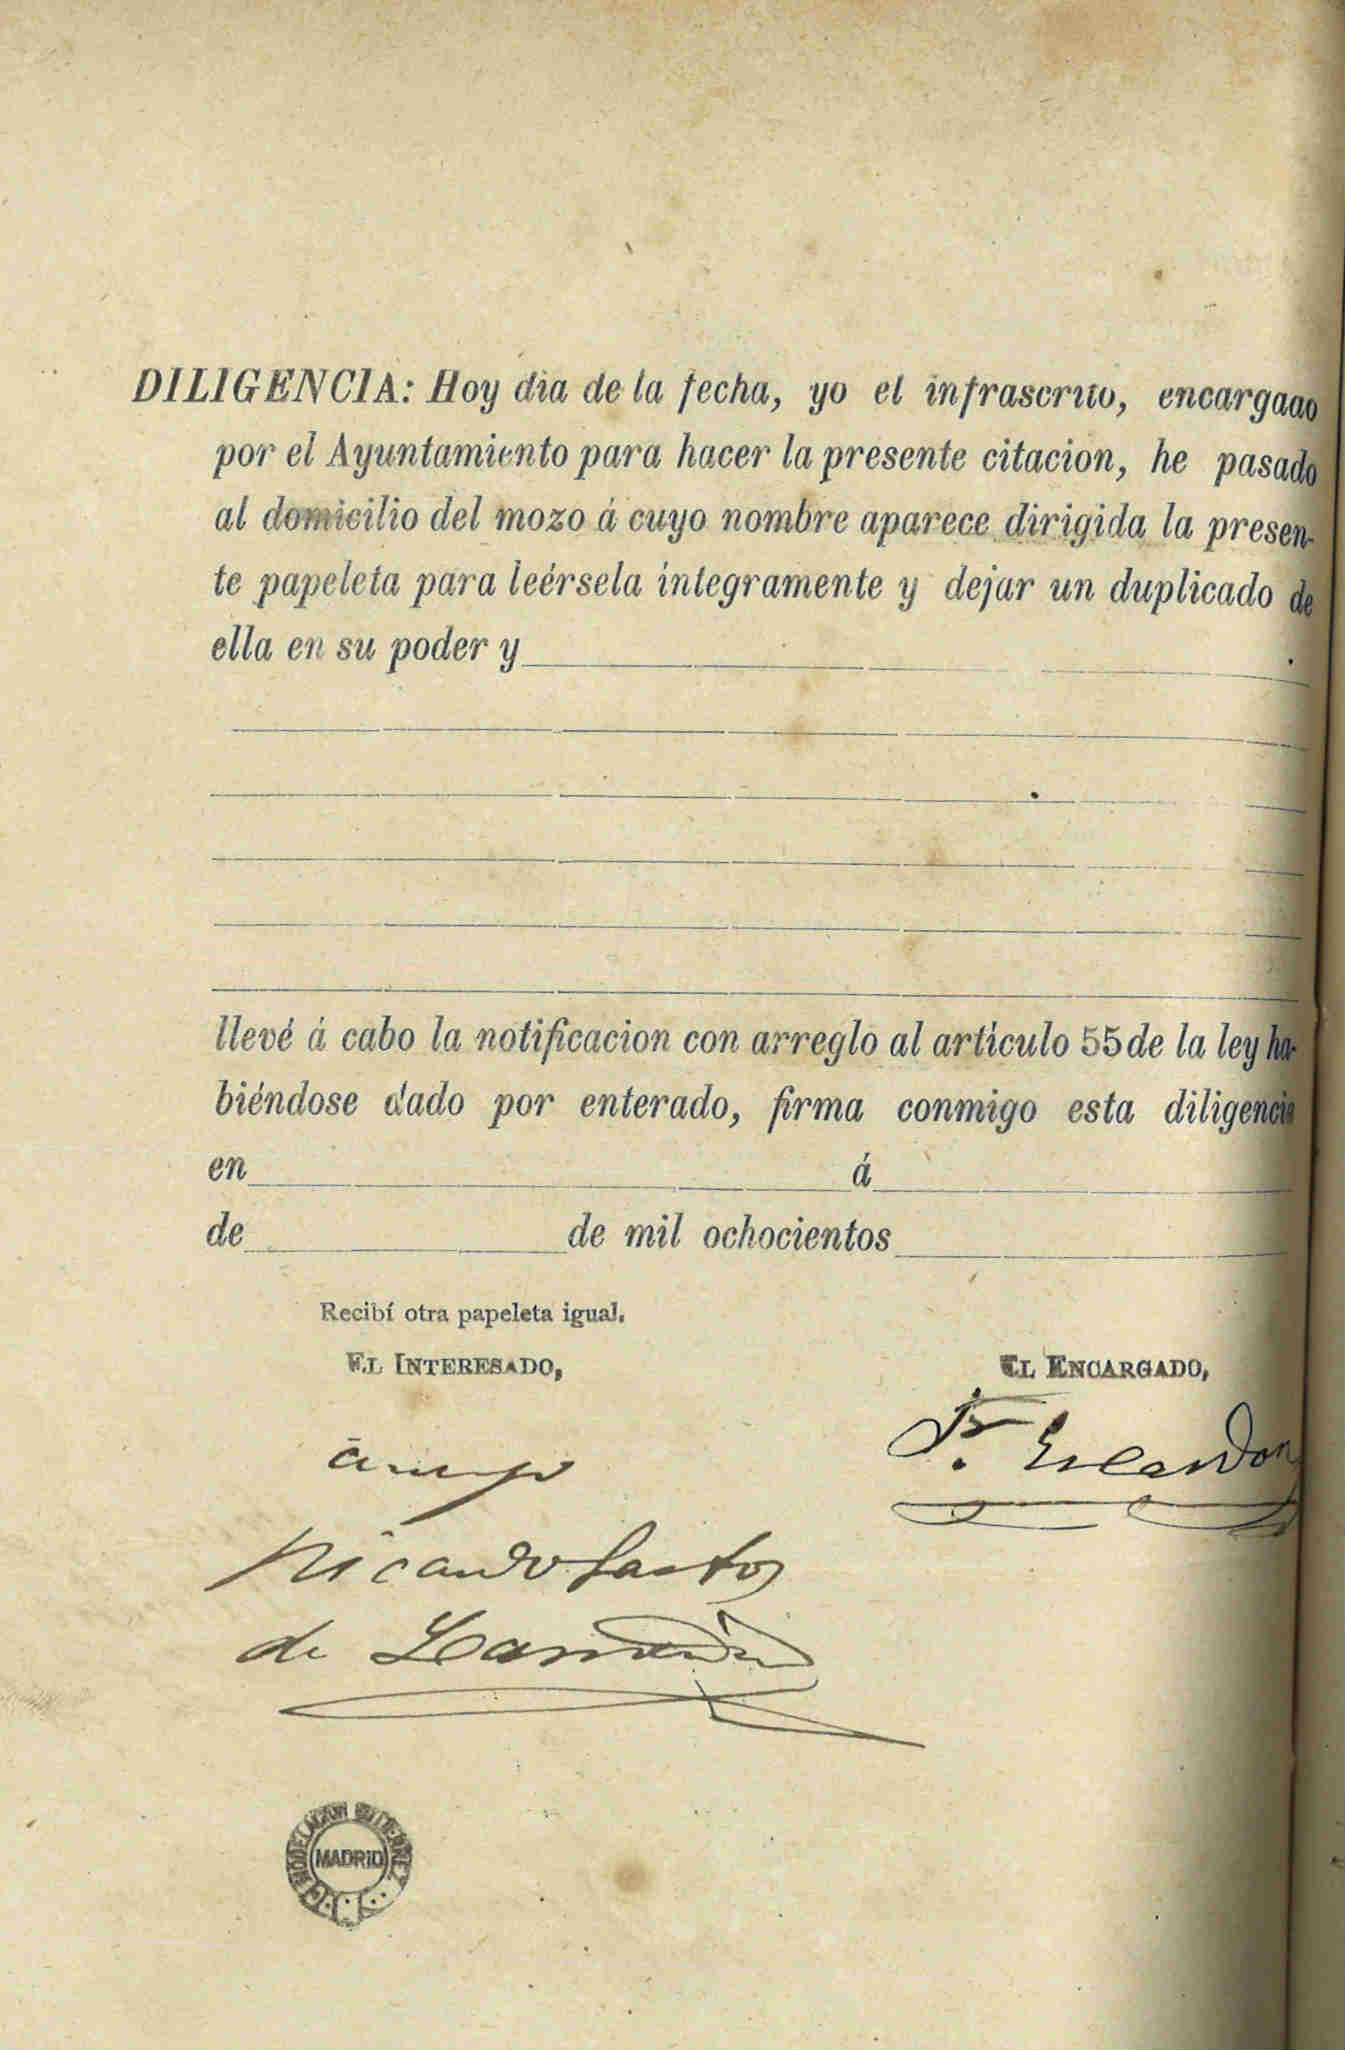 DILIGENCIA: Hoy dia de la fecha, yo el infrascrito, encargado
por el Ayuntamiento para hacer la presente citacion, he pasado
al domicilio del mozo á cuyo nombre aparece dirigida la presen-
te papeleta para leérsela íntegramente y dejar un duplicado de
ella en su poder y
llevé á cabo la notificacion con arreglo al artículo 55 de la ley ha-
biéndose dado por enterado, firma conmigo esta diligencia
en á
de de mil ochocientos
Recibí otra papeleta igual.
EL INTERESADO,
EL ENCARGADO,
Fr. Escandon
Ricardo Santos
de
MODELACION
MADRID